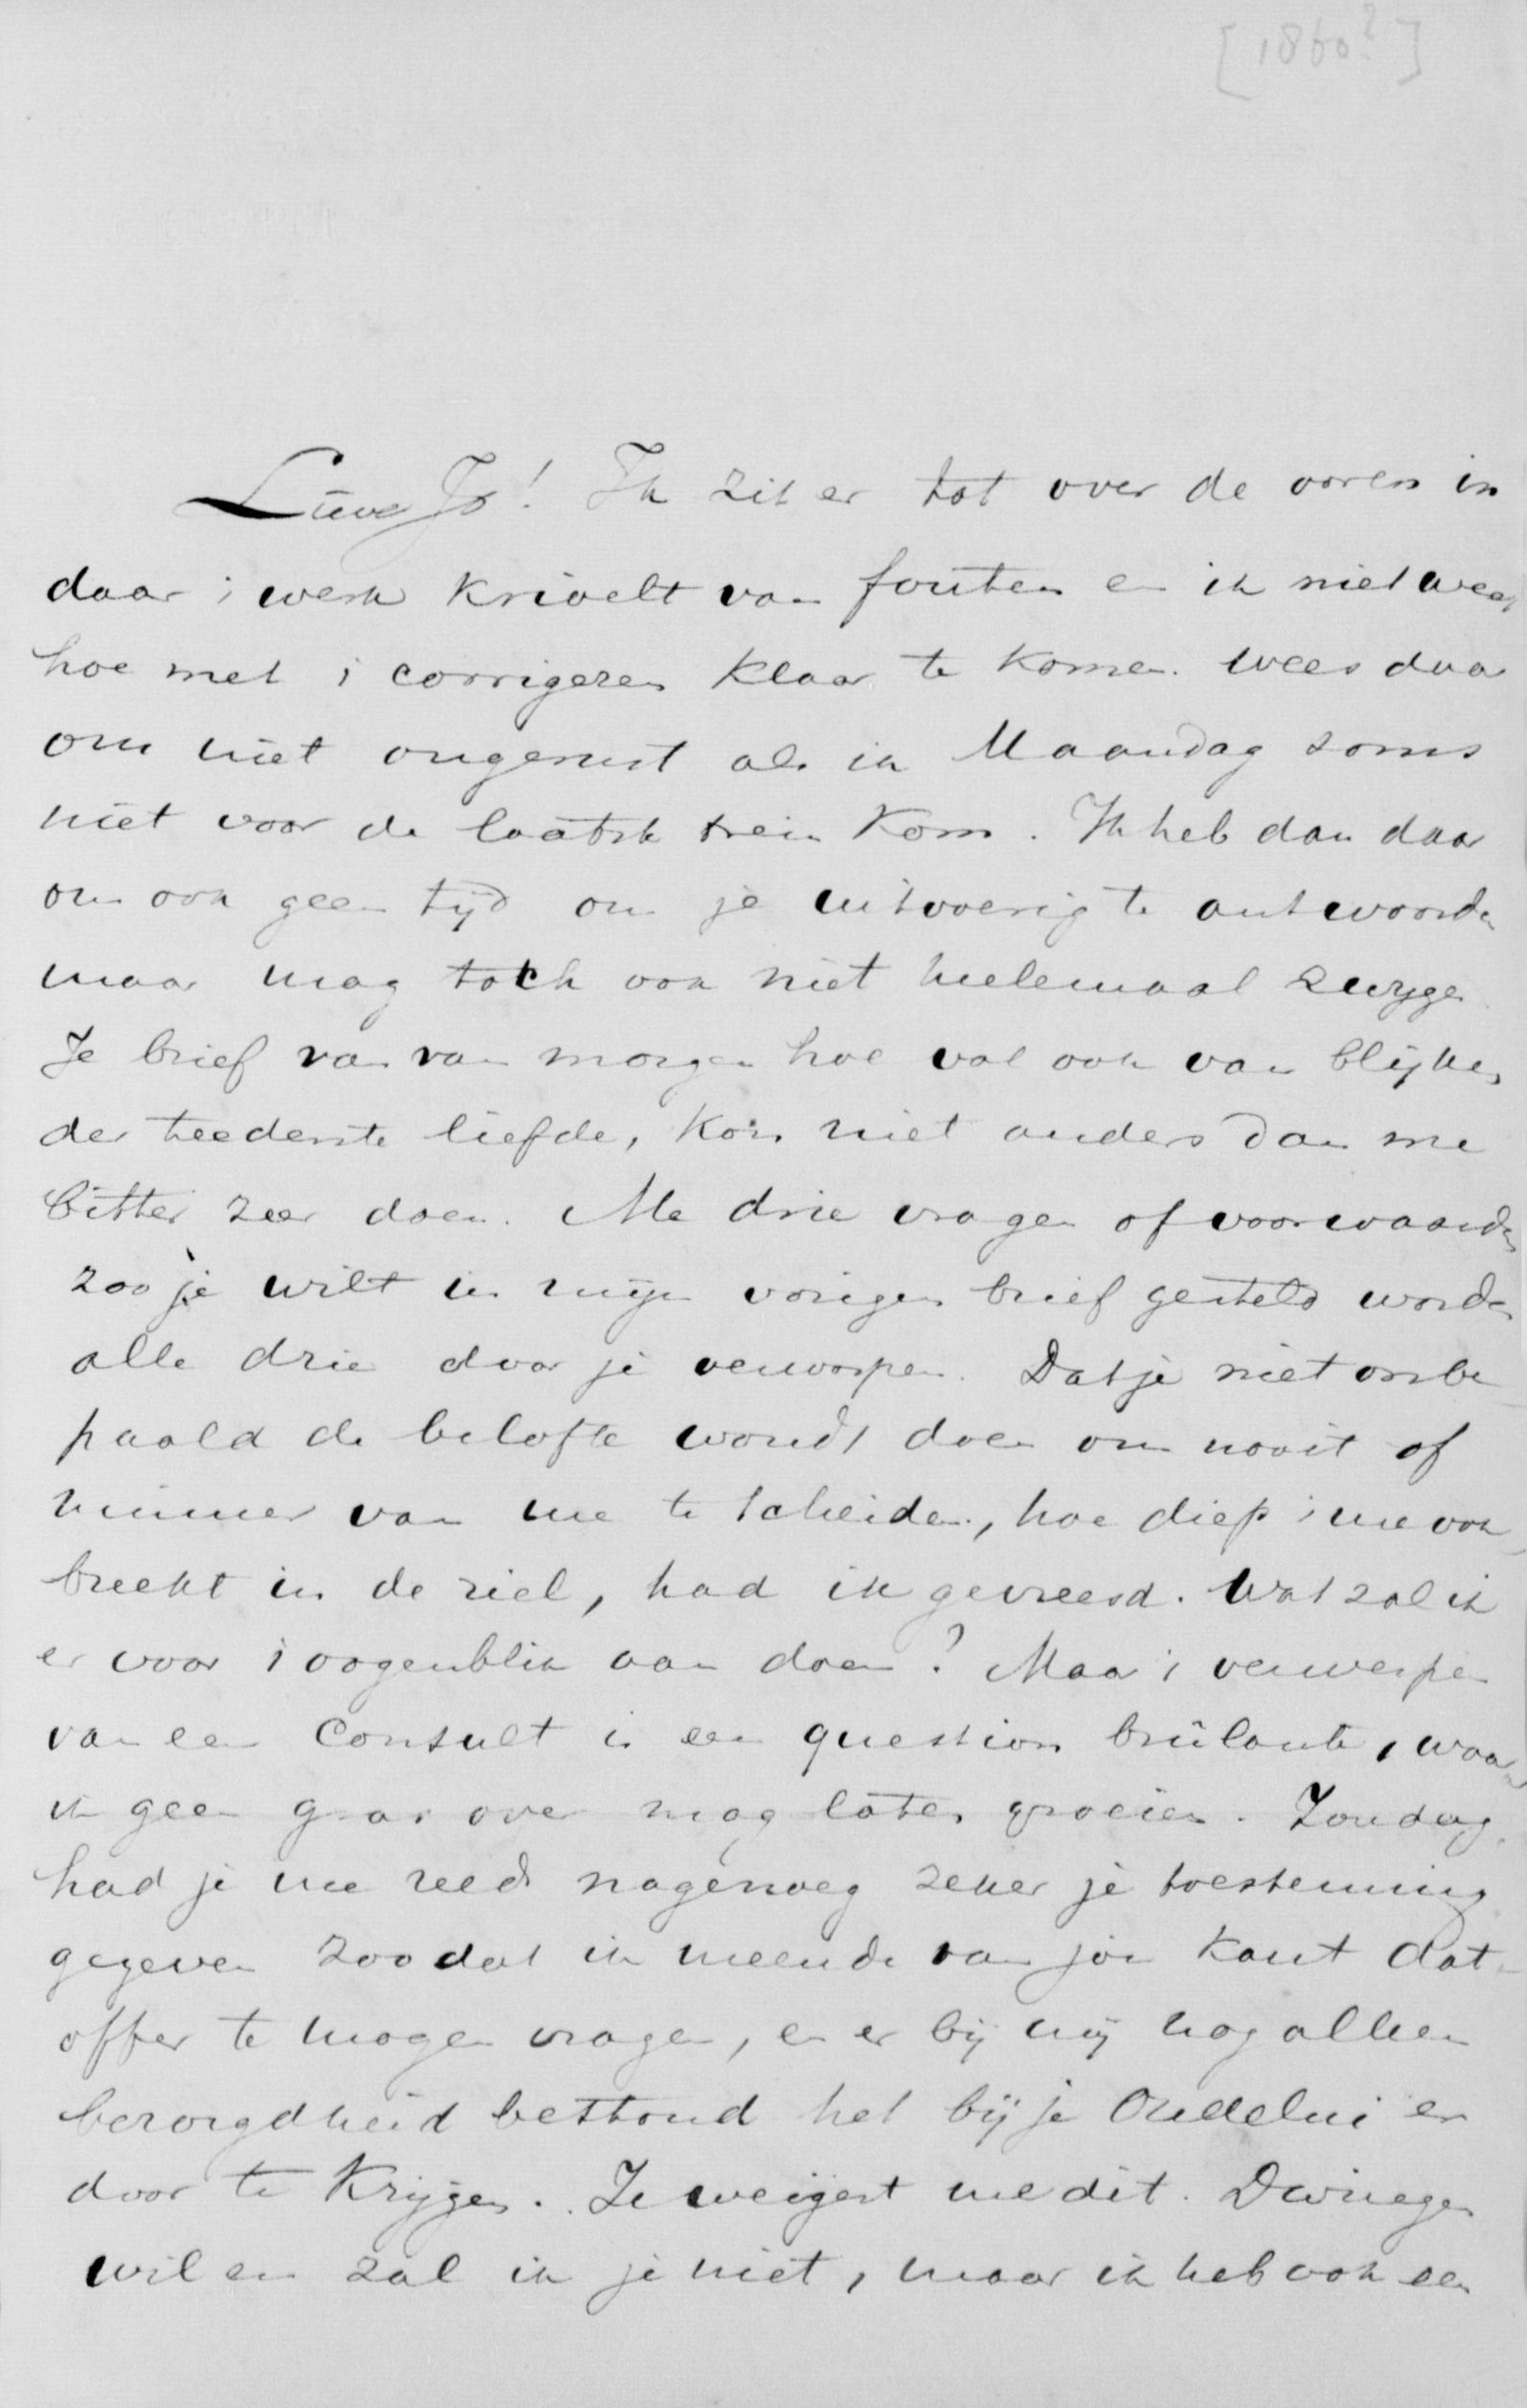 [1860?]
Lieve Jo! Ik zit er tot over de ooren in
daar 't werk krioelt van fouten en ik niet weet
hoe met 't corrigeren klaar te komen. Wees daar
om niet ongerust als ik Maandag soms
niet voor de laatste trein kom. Ik heb dan daar
om ook geen tijd om je uitvoerig te antwoorden
maar mag toch ook niet heelemaal zwijgen
Je brief van van morgen hoe vol ook van blijken
der teederste liefde, kon niet anders dan me
bitter zeer doen. Me drie vragen of voorwaarden
zoo je wilt in mijn vorigen brief gesteld worden
alle drie door je verworpen. Dat je niet onbe
paald de belofte woudt doen om nooit of
nimmer van me te scheiden, hoe diep 't me ook
breekt in de ziel, had ik gevreesd. Wat zal ik
er voor 't oogenblik aan doen? Maar 't verwerpen
van een consult is een question brûlante, waar
ik geen gras over mag laten groeien. Zondag
had je me reeds nagenoeg zeker je toestemming
gegeven zoodat ik meende van jou kant dat
offer te mogen vragen, en er bij mij nog alleen
bezorgdheid bestond het bij je Oudelui er
door te krijgen. Je weigert me dit. Dwingen
wil en zal ik je niet, maar ik heb ook een